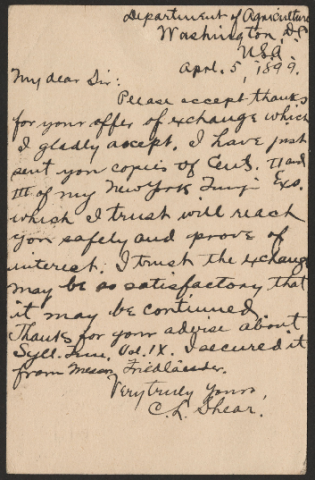 Department of Agriculture
Washington, D.C.
U.S.A.
Apr. 5, 1899.
My dear Sir:
Please accept thanks
for your offer of exchange which
I gladly accept. I have just
sent you copies of Cent. II and
III of my New York Fungi Exs.
which I trust will reach
you safely and prove of
interest. I trust the exchange
may be so satisfactory that
it may be continued.
Thanks for your advise about
Syll. Fung. Vol. IX. I secured it
from Friedländer.
Very truly yours,
C. L. Shear.